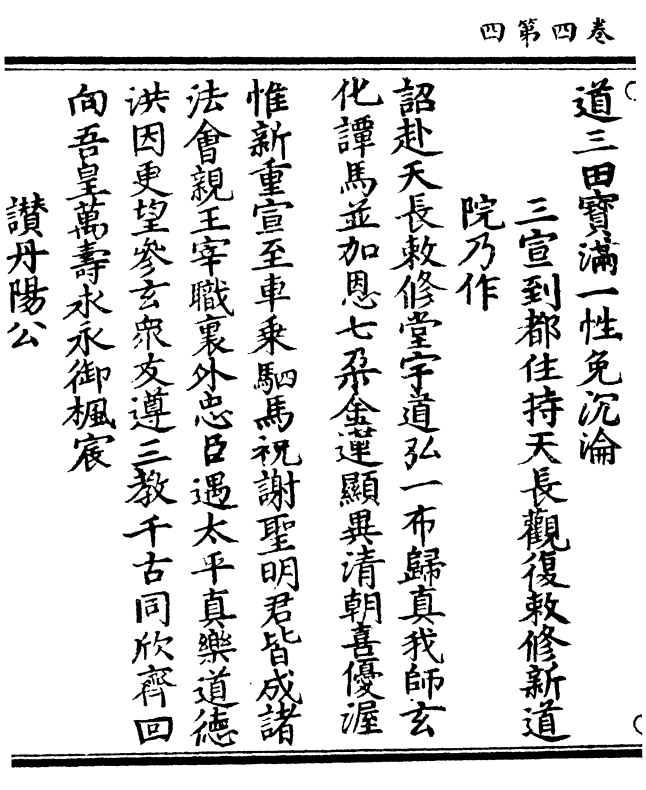 卷四第四
道三田寶滿一性免沉淪
三宣到都住持天長觀復敕修新道
院乃作
詔赴天長敕修堂宇道弘一布歸真我師玄
化譚馬並加恩七朶金蓮顯異清朝喜優渥
惟新重宣至車乘駟馬祝謝聖明君皆成諸
法會親王宰職裏外忠臣遇太平真樂道德
洪因更望參玄衆友遵三教千古同欣齊回
向吾皇萬壽永永御楓宸
讃丹陽公